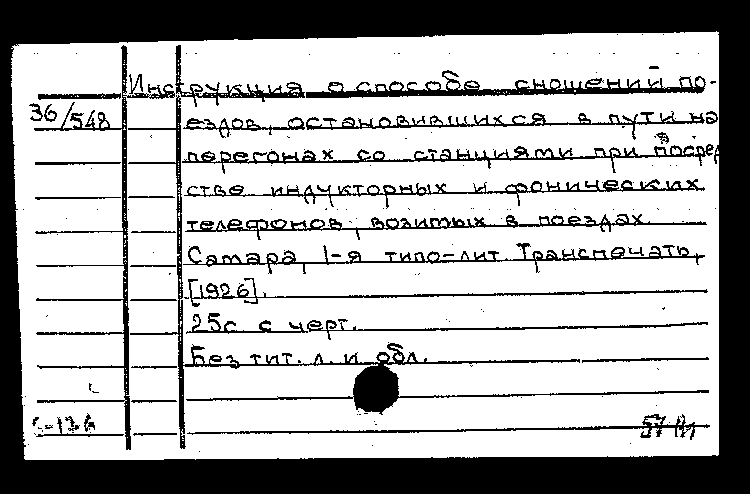 Инструкция о способе сношений по-
36/548 ездов, остановившихся в пути на
перегонах со станциями при посред
стве индукторных и фонических
телефонов, возимых в поездах.
Самара, 1-я типо-лит. Транспечать,
[1926].
25с с черт.
Без тит. л. и обл.